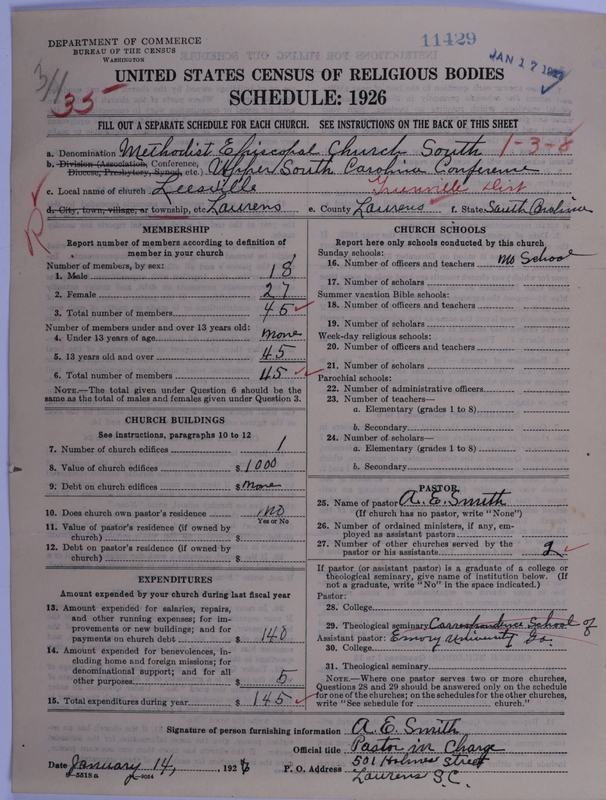 DEPARTMENT OF COMMERCE
BUREAU OF THE CENSUS
WASHINGTON
11429
JAN 17 192
35
UNITED STATES CENSUS OF RELIGIOUS BODIES
SCHEDULE: 1926
FILL OUT A SEPARATE SCHEDULE FOR EACH CHURCH. SEE INSTRUCTIONS ON THE BACK OF THIS SHEET
a. Denomination Methodist Episcopal Church South 1-3-8
b. Division (Association, Conference, Diocese, Presbytery, Synod, etc.) Upper South Carolina Conference
c. Local name of church Leesville Greenville Dist
d. City, town, village, or township, etc. Laurens e. County Laurens f. State South Carolina
R
MEMBERSHIP
Report number of members according to definition of
member in your church
Number of members, by sex:
1. Male 18
2. Female 27
3. Total number of members 45
Number of members under and over 13 years old:
4. Under 13 years of age none
5. 13 years old and over 45
6. Total number of members 45
NOTE.—The total given under Question 6 should be the
same as the total of males and females given under Question 3.
CHURCH BUILDINGS
See instructions, paragraphs 10 to 12
7. Number of church edifices 1
8. Value of church edifices $ 1000
9. Debt on church edifices $ none
10. Does church own pastor's residence no
Yes or No
11. Value of pastor's residence (if owned by
church) $
12. Debt on pastor's residence (if owned by
church) $
EXPENDITURES
Amount expended by your church during last fiscal year
13. Amount expended for salaries, repairs,
and other running expenses; for im-
provements or new buildings; and for
payments on church debt $ 140
14. Amount expended for benevolences, in-
cluding home and foreign missions; for
denominational support; and for all
other purposes $ 5
15. Total expenditures during year $ 145
CHURCH SCHOOLS
Report here only schools conducted by this church
Sunday schools:
16. Number of officers and teachers no School
17. Number of scholars
Summer vacation Bible schools:
18. Number of officers and teachers
19. Number of scholars
Week-day religious schools:
20. Number of officers and teachers
21. Number of scholars
Parochial schools:
22. Number of administrative officers
23. Number of teachers—
a. Elementary (grades 1 to 8)
b. Secondary
24. Number of scholars—
a. Elementary (grades 1 to 8)
b. Secondary
PASTOR
25. Name of pastor A. E. Smith
(If church has no pastor, write "None")
26. Number of ordained ministers, if any, em-
ployed as assistant pastors
27. Number of other churches served by the
pastor or his assistants 2
If pastor (or assistant pastor) is a graduate of a college or
theological seminary, give name of institution below. (If
not a graduate, write "No" in the space indicated.)
Pastor:
28. College
29. Theological seminary Correspondence School of
Assistant pastor: Emory University Ga.
30. College
31. Theological seminary
NOTE.—Where one pastor serves two or more churches,
Questions 28 and 29 should be answered only on the schedule
for one of the churches; on the schedules for the other churches,
write "See schedule for church."
Signature of person furnishing information A. E. Smith
Official title Pastor in Charge
Date January 14, 1927 P. O. Address 501 Holmes Street
Laurens S.C.